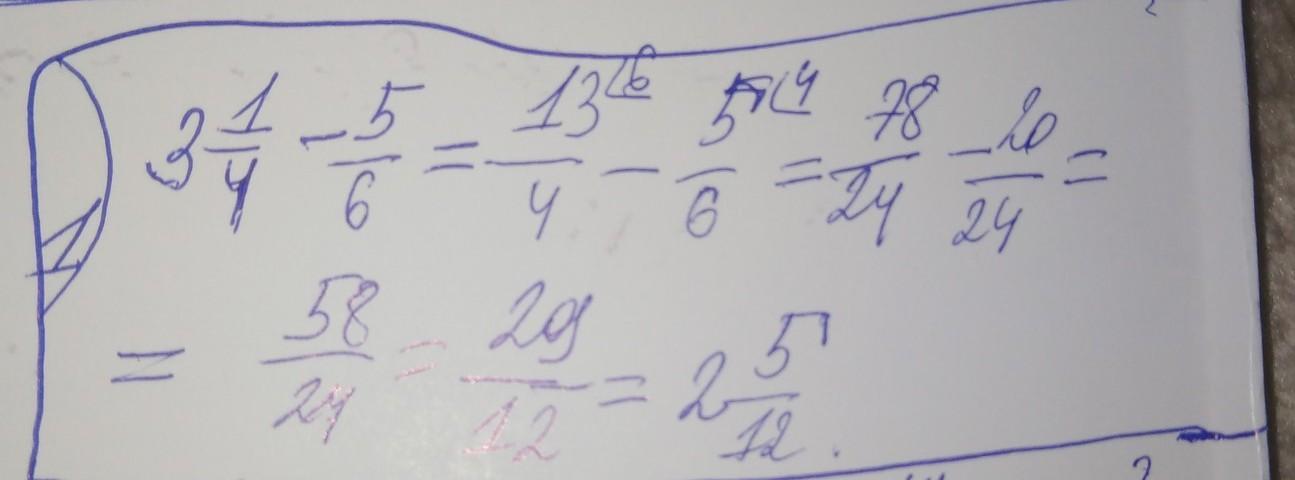 3 1/4 - 5/6 = 13⌊6/4 - 5⌊4/6 = 78/24 - 20/24 =
1
= 58/24 = 29/12 = 2 5/12.